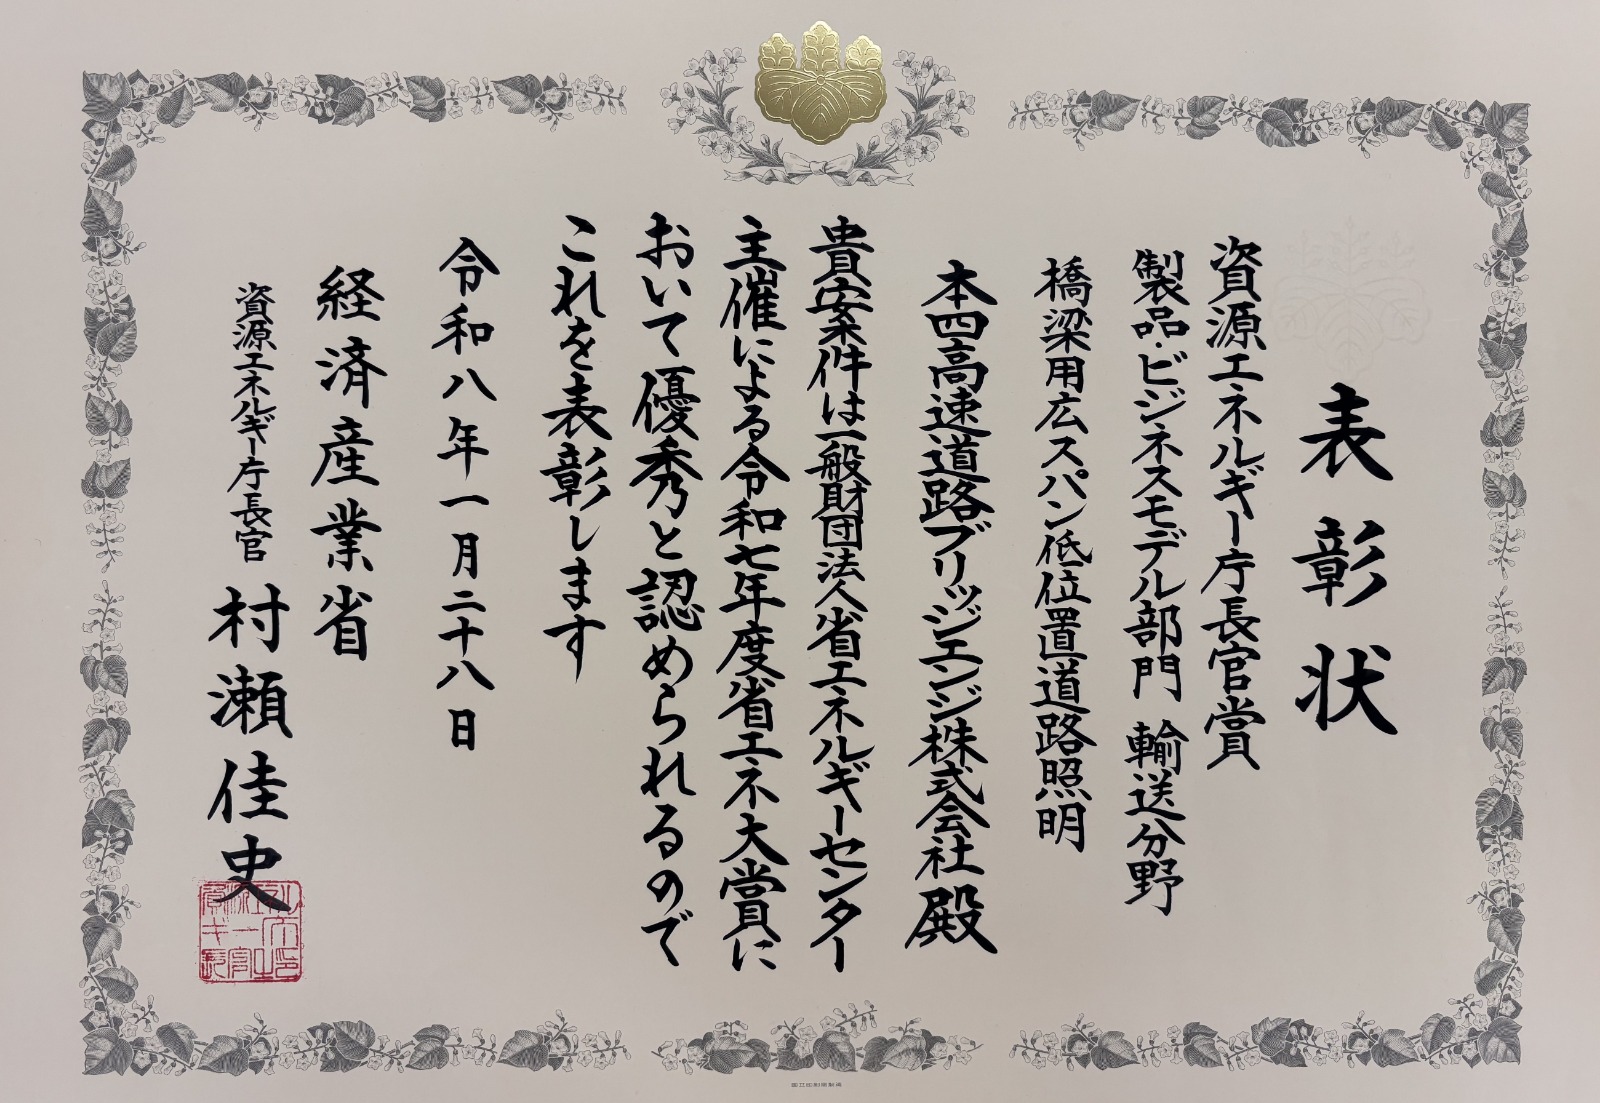 表彰状
資源エネルギー庁長官賞
製品・ビジネスモデル部門 輸送分野
橋梁用広スパン低位置道路照明
本四高速道路ブリッジエンジ株式会社 殿
貴案件は一般財団法人省エネルギーセンター
主催による令和七年度省エネ大賞に
おいて優秀と認められるので
これを表彰します
令和八年一月二十八日
経済産業省
資源エネルギー庁長官 村瀬佳史